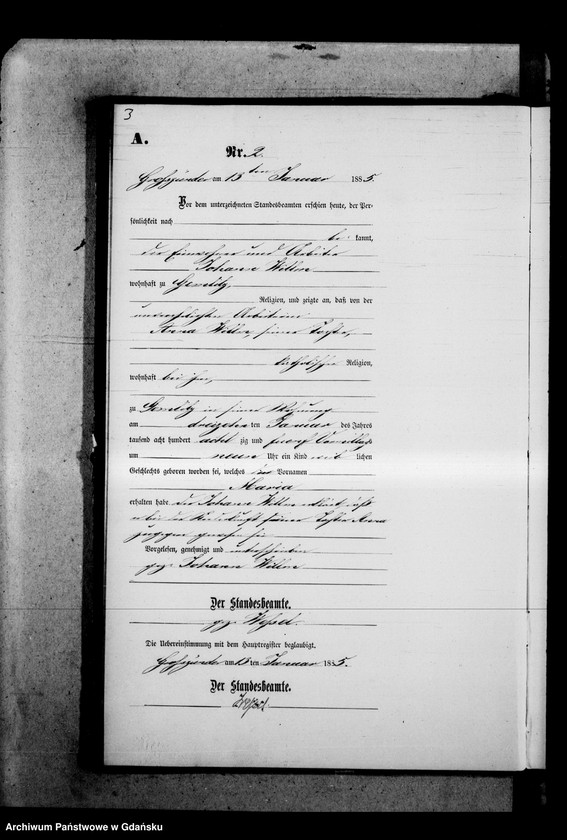 3
A.
Nr. 2.
am 15ten Januar 1885.
Vor dem unterzeichneten Standesbeamten erschien heute, der Per-
sönlichkeit nach
be kannt,
der Einwohner und Arbeiter
Johann
wohnhaft zu
Religion, und zeigte an, daß von der
unverehelichten Arbeiterin
Anna seiner Tochter,
katholischer Religion,
wohnhaft bei ihm,
zu in seiner Wohnung
am dreizehn ten Januar des Jahres
tausend acht hundert acht zig und fünf Vormittags
um neun Uhr ein Kind weib lichen
Geschlechts geboren worden sei, welches den Vornamen
Maria
erhalten habe. Der Johann erklärt, daß
er bei der Niederkunft seiner Tochter Anna
zugegen gewesen sei.
Vorgelesen, genehmigt und unterschrieben
gez. Johann
Der Standesbeamte.
gez. Wessel.
Die Uebereinstimmung mit dem Hauptregister beglaubigt.
am 15 ten Januar 1885.
Der Standesbeamte.
Wessel
Archiwum Państwowe w Gdańsku